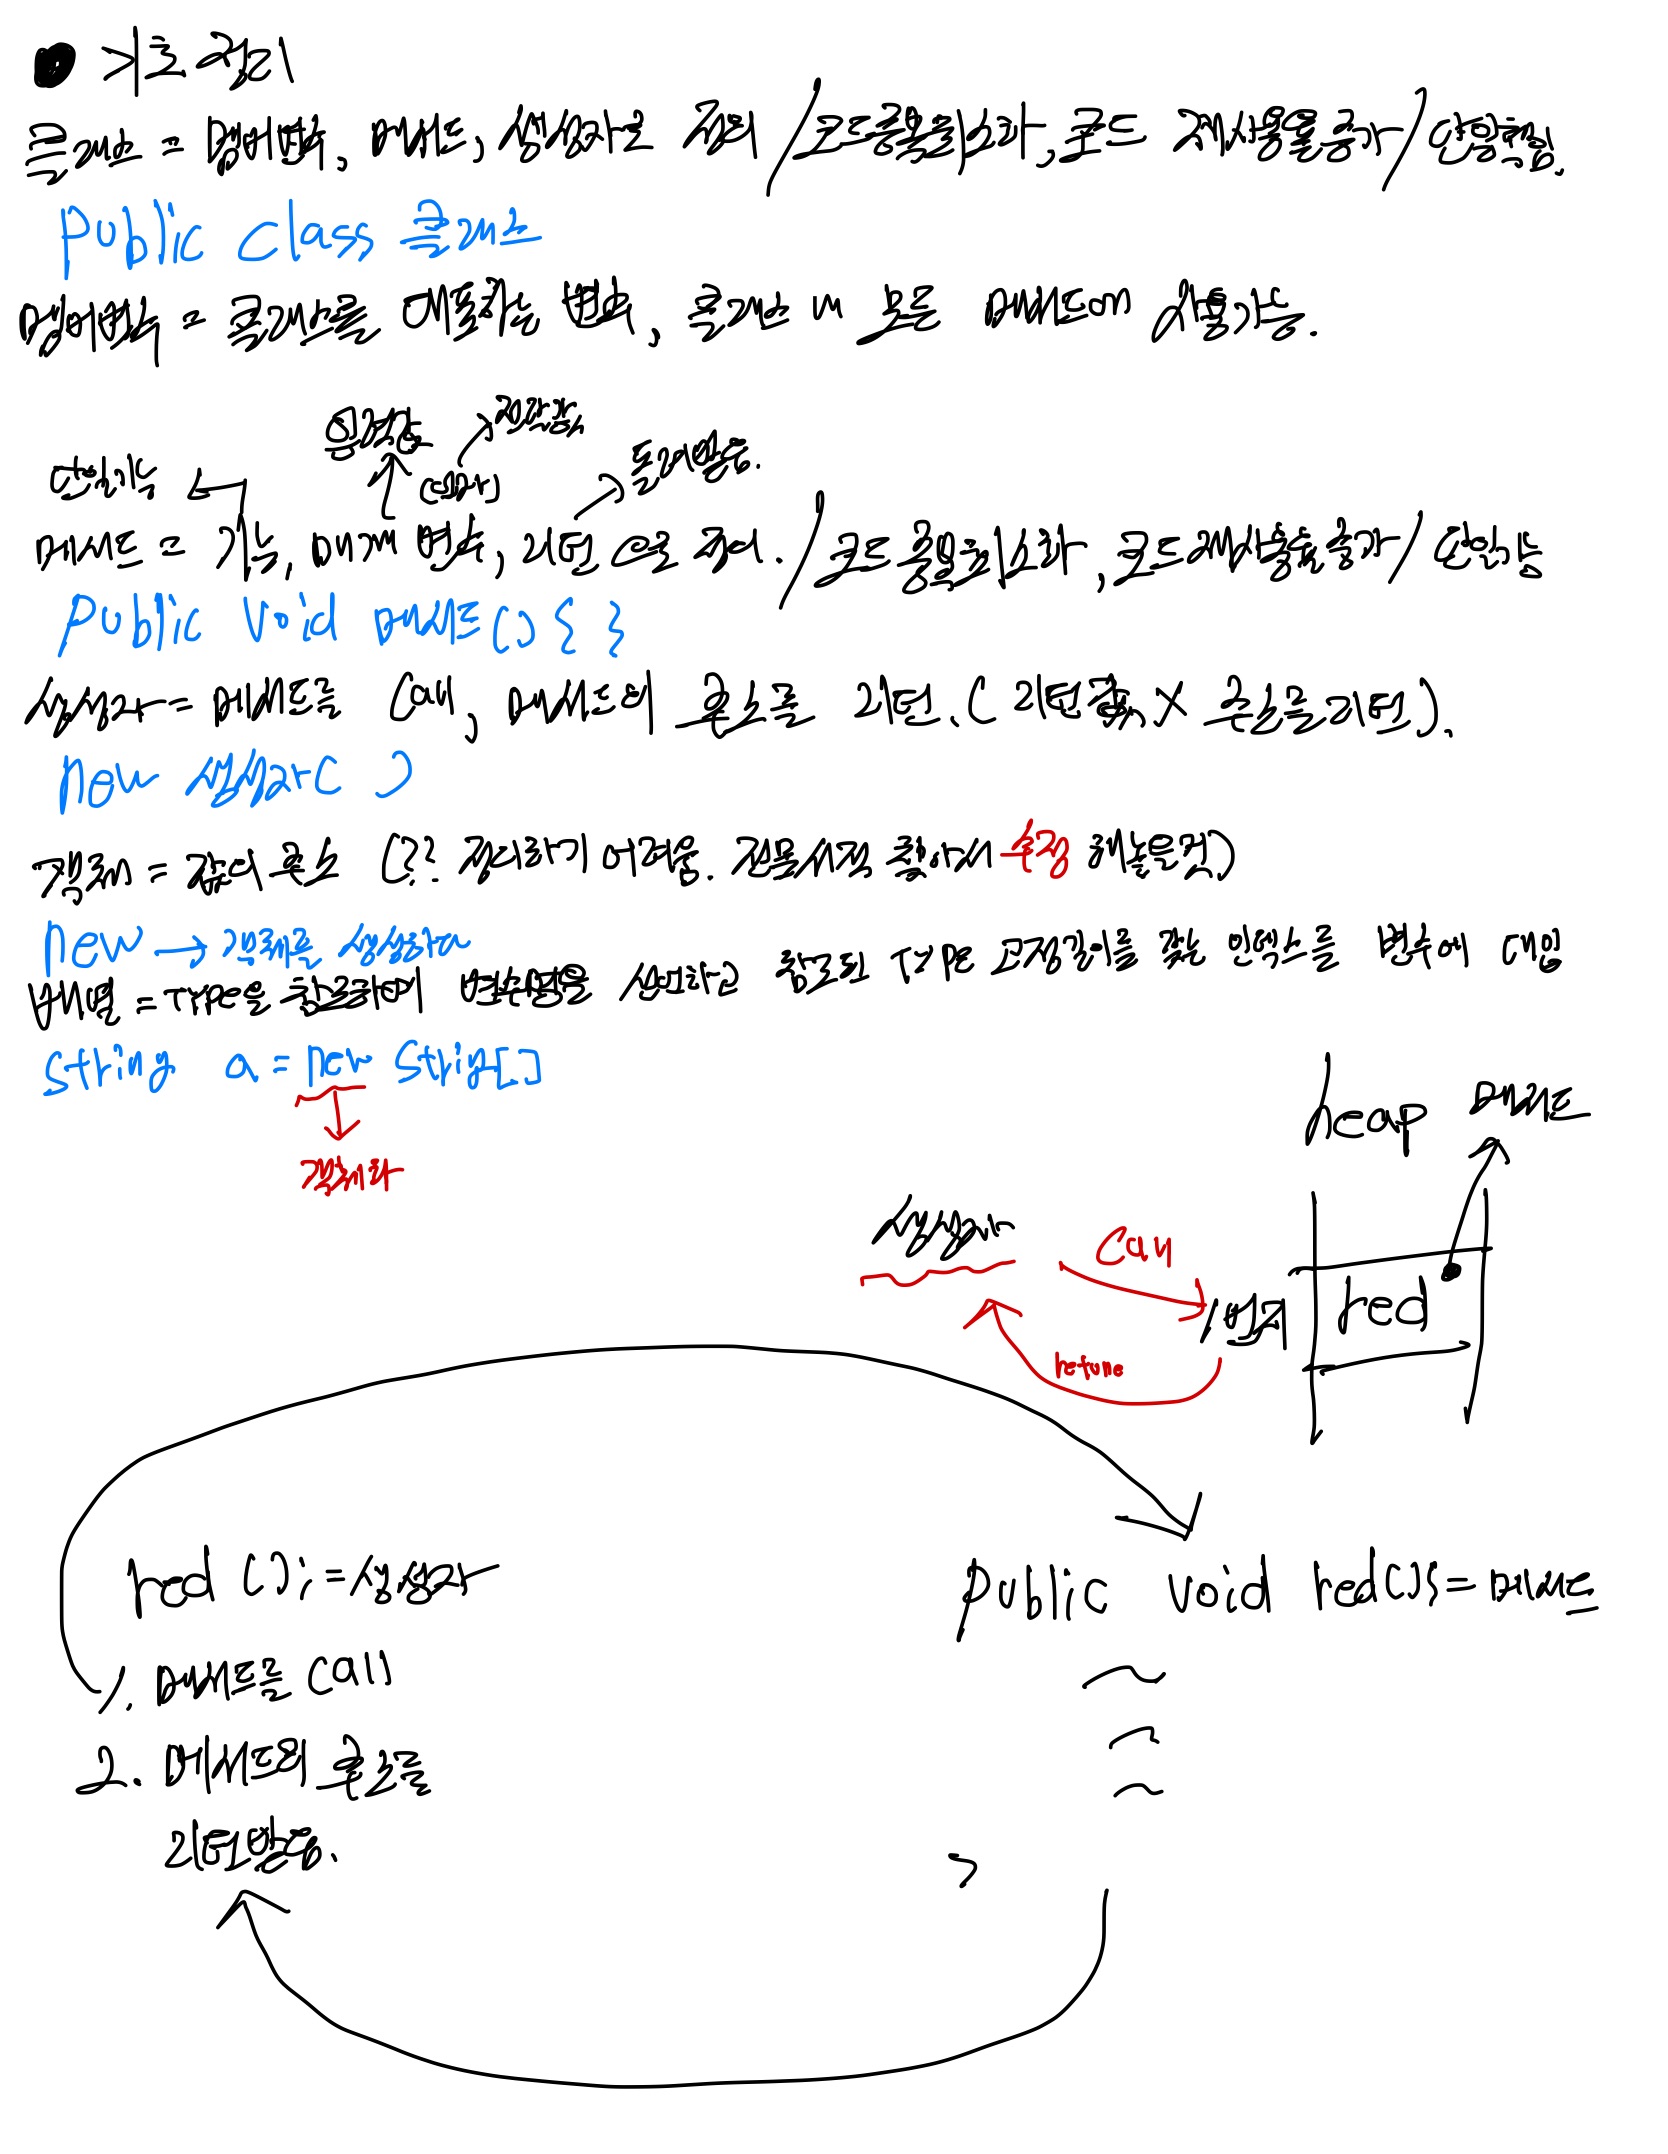 기초 정리
클래스 = 멤버변수, 메서드, 생성자로 정의 / 코드중복최소화, 코드 재사용률증가 /
public class 클래스
멤버변수 = 클래스를 대표하는 변수, 클래스 내 모든 메서드에서 사용가능.
단일기능
전달값
(인자)
돌려받음.
메서드 = 기능, 매개 변수, 리턴 으로 정의. / 코드 중복최소화, 코드재사용률증가 / 단일기능
public void 메서드() { }
생성자 = 메서드를 Call, 메서드의 주소를 리턴. ( 리턴값 X 주소를리턴).
new 생성자( )
객체 = 값의 주소 (?? 정의하기 어려움. 전문서적 찾아서 수정 해놓을것)
new → 객체를 생성하다
배열 = TYPE을 참조하여 변수명을 선언하고 참조된 TYPE 고정길이를 갖는 인덱스를 변수에 대입
string a = new String[]
객체화
heap 메서드
생성자 Call
1번지 red
retune
red (); = 생성자
public void red(){ = 메서드
1. 메서드를 call
2. 메서드의 주소를
리턴받음.
}